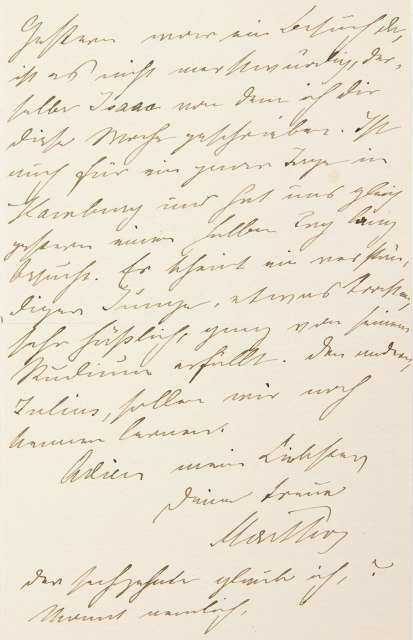 Gestern war ein Besuch da,
ist es nicht merkwürdig, der-
selbe Isaac von dem ich dir
diese Woche geschrieben. Ist
auch für ein paar Tage in
Hamburg und hat uns gleich
gestern einen halben Tag lang
besucht. Er scheint ein verstän-
diger Junge, etwas
sehr häßlich, ganz von seinem
Studium erfüllt. Den andern,
Julius, sollen wir noch
kennen lernen.
Adieu mein Liebster
Deine treue
Martha
der sechzehnte glaube ich, ?
Monat nemlich.